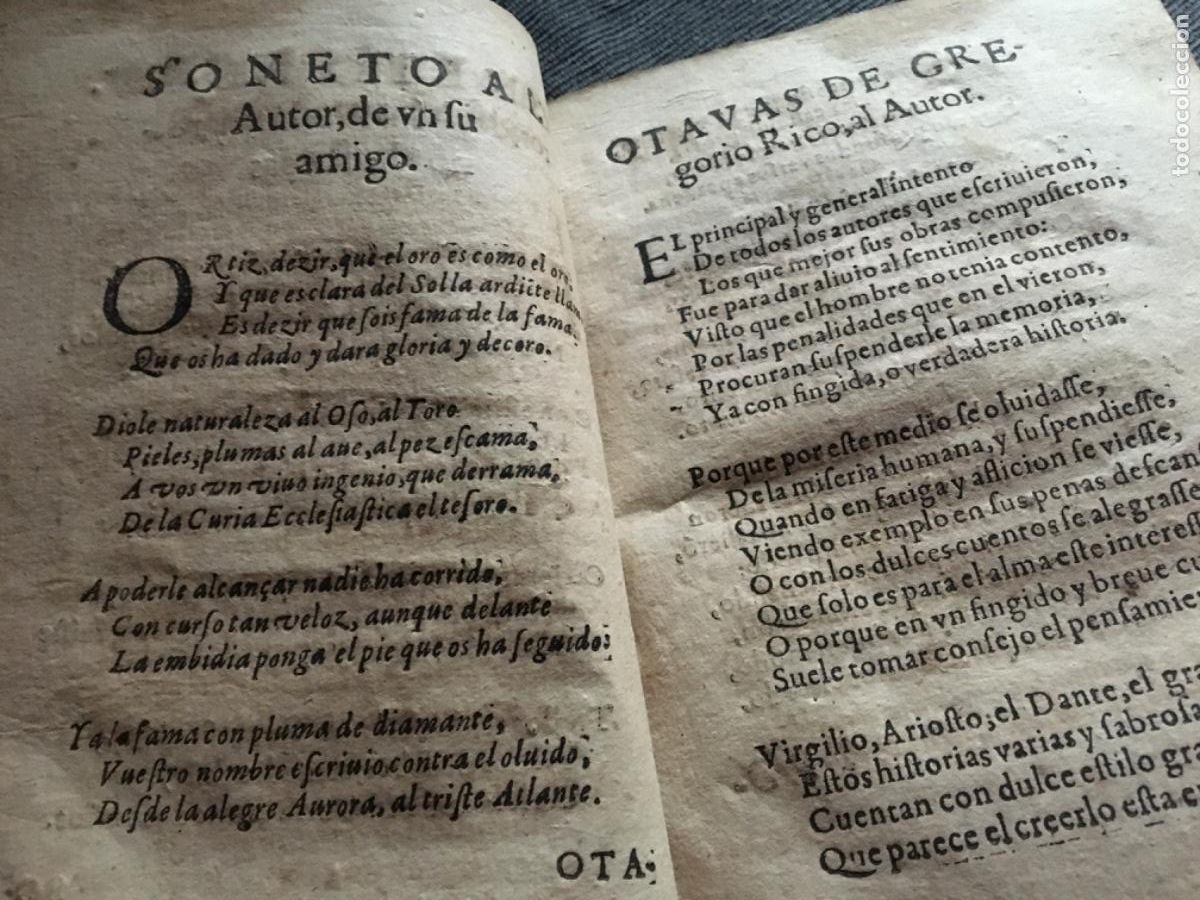 SONETO AL
Autor, de vn ſu
amigo.
ORtiz, dezir, que el oro es como el oro,
Y que es clara del Sol la ardiẽte llama
Es dezir que ſois fama de la fama,
Que os ha dado y dara gloria y decoro.
Diole naturaleza al Oſo, al Toro
Pieles, plumas al aue, al pez eſcama,
A vos vn viuo ingenio, que derrama,
De la Curia Eccleſiaſtica el teſoro.
A poderle alcançar nadie ha corrido,
Con curſo tan veloz, aunque delante
La embidia ponga el pie que os ha ſeguido:
Y a la fama con pluma de diamante,
Vueſtro nombre eſcriuio contra el oluido,
Deſde la alegre Aurora, al triſte Atlante.
OTA-
OTAVAS DE GRE-
gorio Rico, al Autor.
EL principal y general intento
De todos los autores que eſcriuieron,
Los que mejor ſus obras compuſieron,
Fue para dar aliuio al ſentimiento:
Viſto que el hombre no tenia contento,
Por las penalidades que en el vieron,
Procuran ſuſpenderle la memoria,
Ya con fingida, o verdadera hiſtoria.
Porque por eſte medio ſe oluidaſſe,
De la miſeria humana, y ſuſpendieſſe,
Quando en fatiga y aflicion ſe vieſſe,
Viendo exemplo en ſus penas deſcan
O con los dulces cuentos ſe alegraſſe
Que ſolo es para el alma eſte intereſ
O porque en vn fingido y breue cu
Suele tomar conſejo el penſamie
Virgilio, Arioſto, el Dante, el gra
Eſtos hiſtorias varias y ſabroſa
Cuentan con dulce eſtilo gra
Que parece el creerlo eſta e
todocoleccion